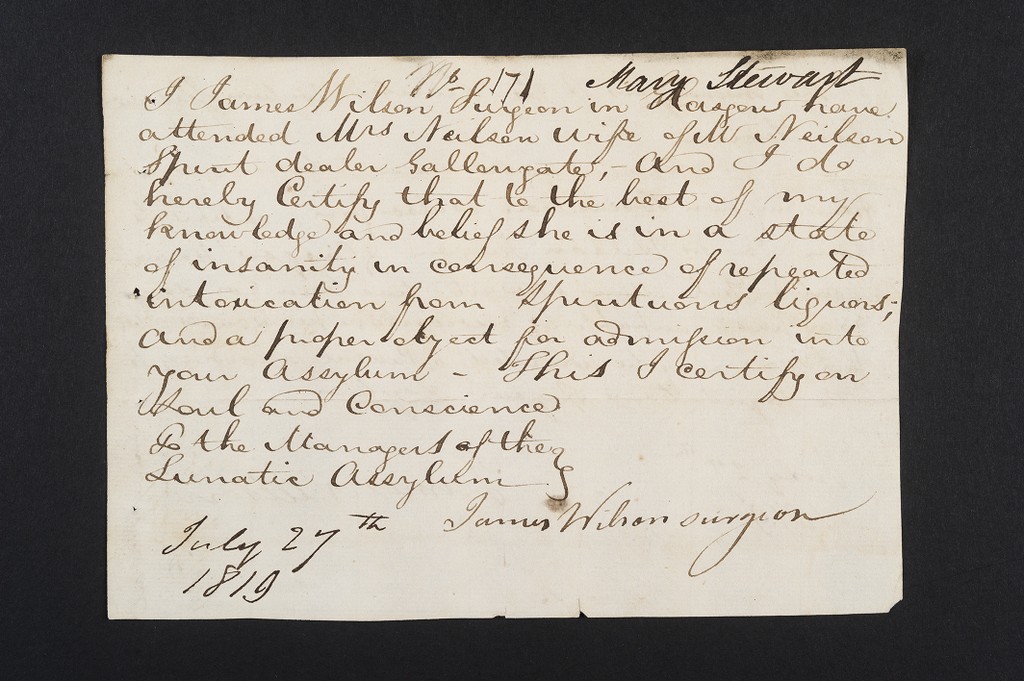 No 171 Mary Stewart
I James Wilson Surgeon in Glasgow have
attended Mrs Neilson wife of Mr Neilson
Spirit dealer Gallowgate, - And I do
hereby Certify that to the best of my
knowledge and belief she is in a state
of insanity in consequence of repeated
intoxication from spirituous liquors;
and a proper object for admission into
your Assylum - This I certify on
Soul and Conscience
To the Managers of the
Lunatic Assylum
James Wilson surgeon
July 27th
1819